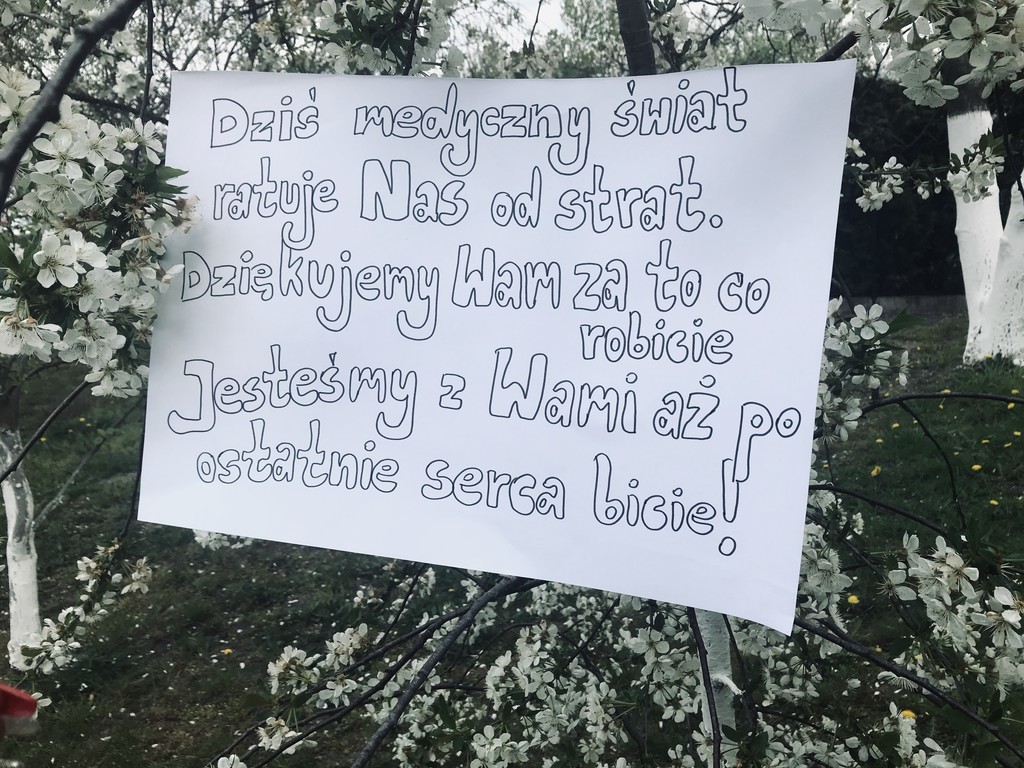 Dziś medyczny świat
ratuje Nas od strat.
Dziękujemy Wam za to co
robicie
Jesteśmy z Wami aż po
ostatnie serca bicie!